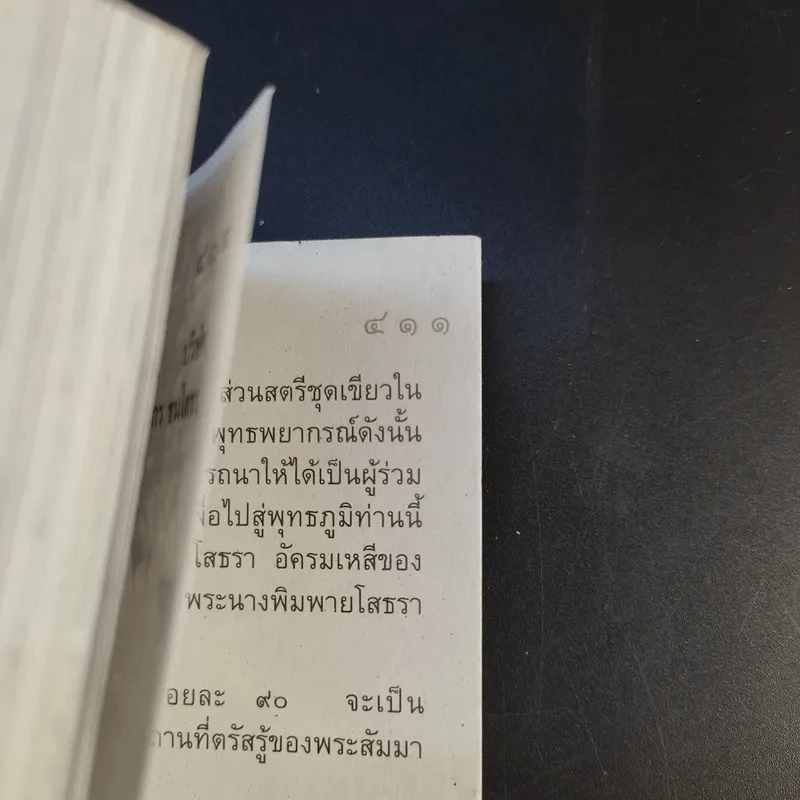 ๔๑๑
ส่วนสตรีชุดเขียวใน
พุทธพยากรณ์ดังนั้น
รถนาให้ได้เป็นผู้ร่วม
อไปสู่พุทธภูมิท่านนี้
โสธรา อัครมเหสีของ
พระนางพิมพายโสธรา
อยละ ๙๐ จะเป็น
านที่ตรัสรู้ของพระสัมมา